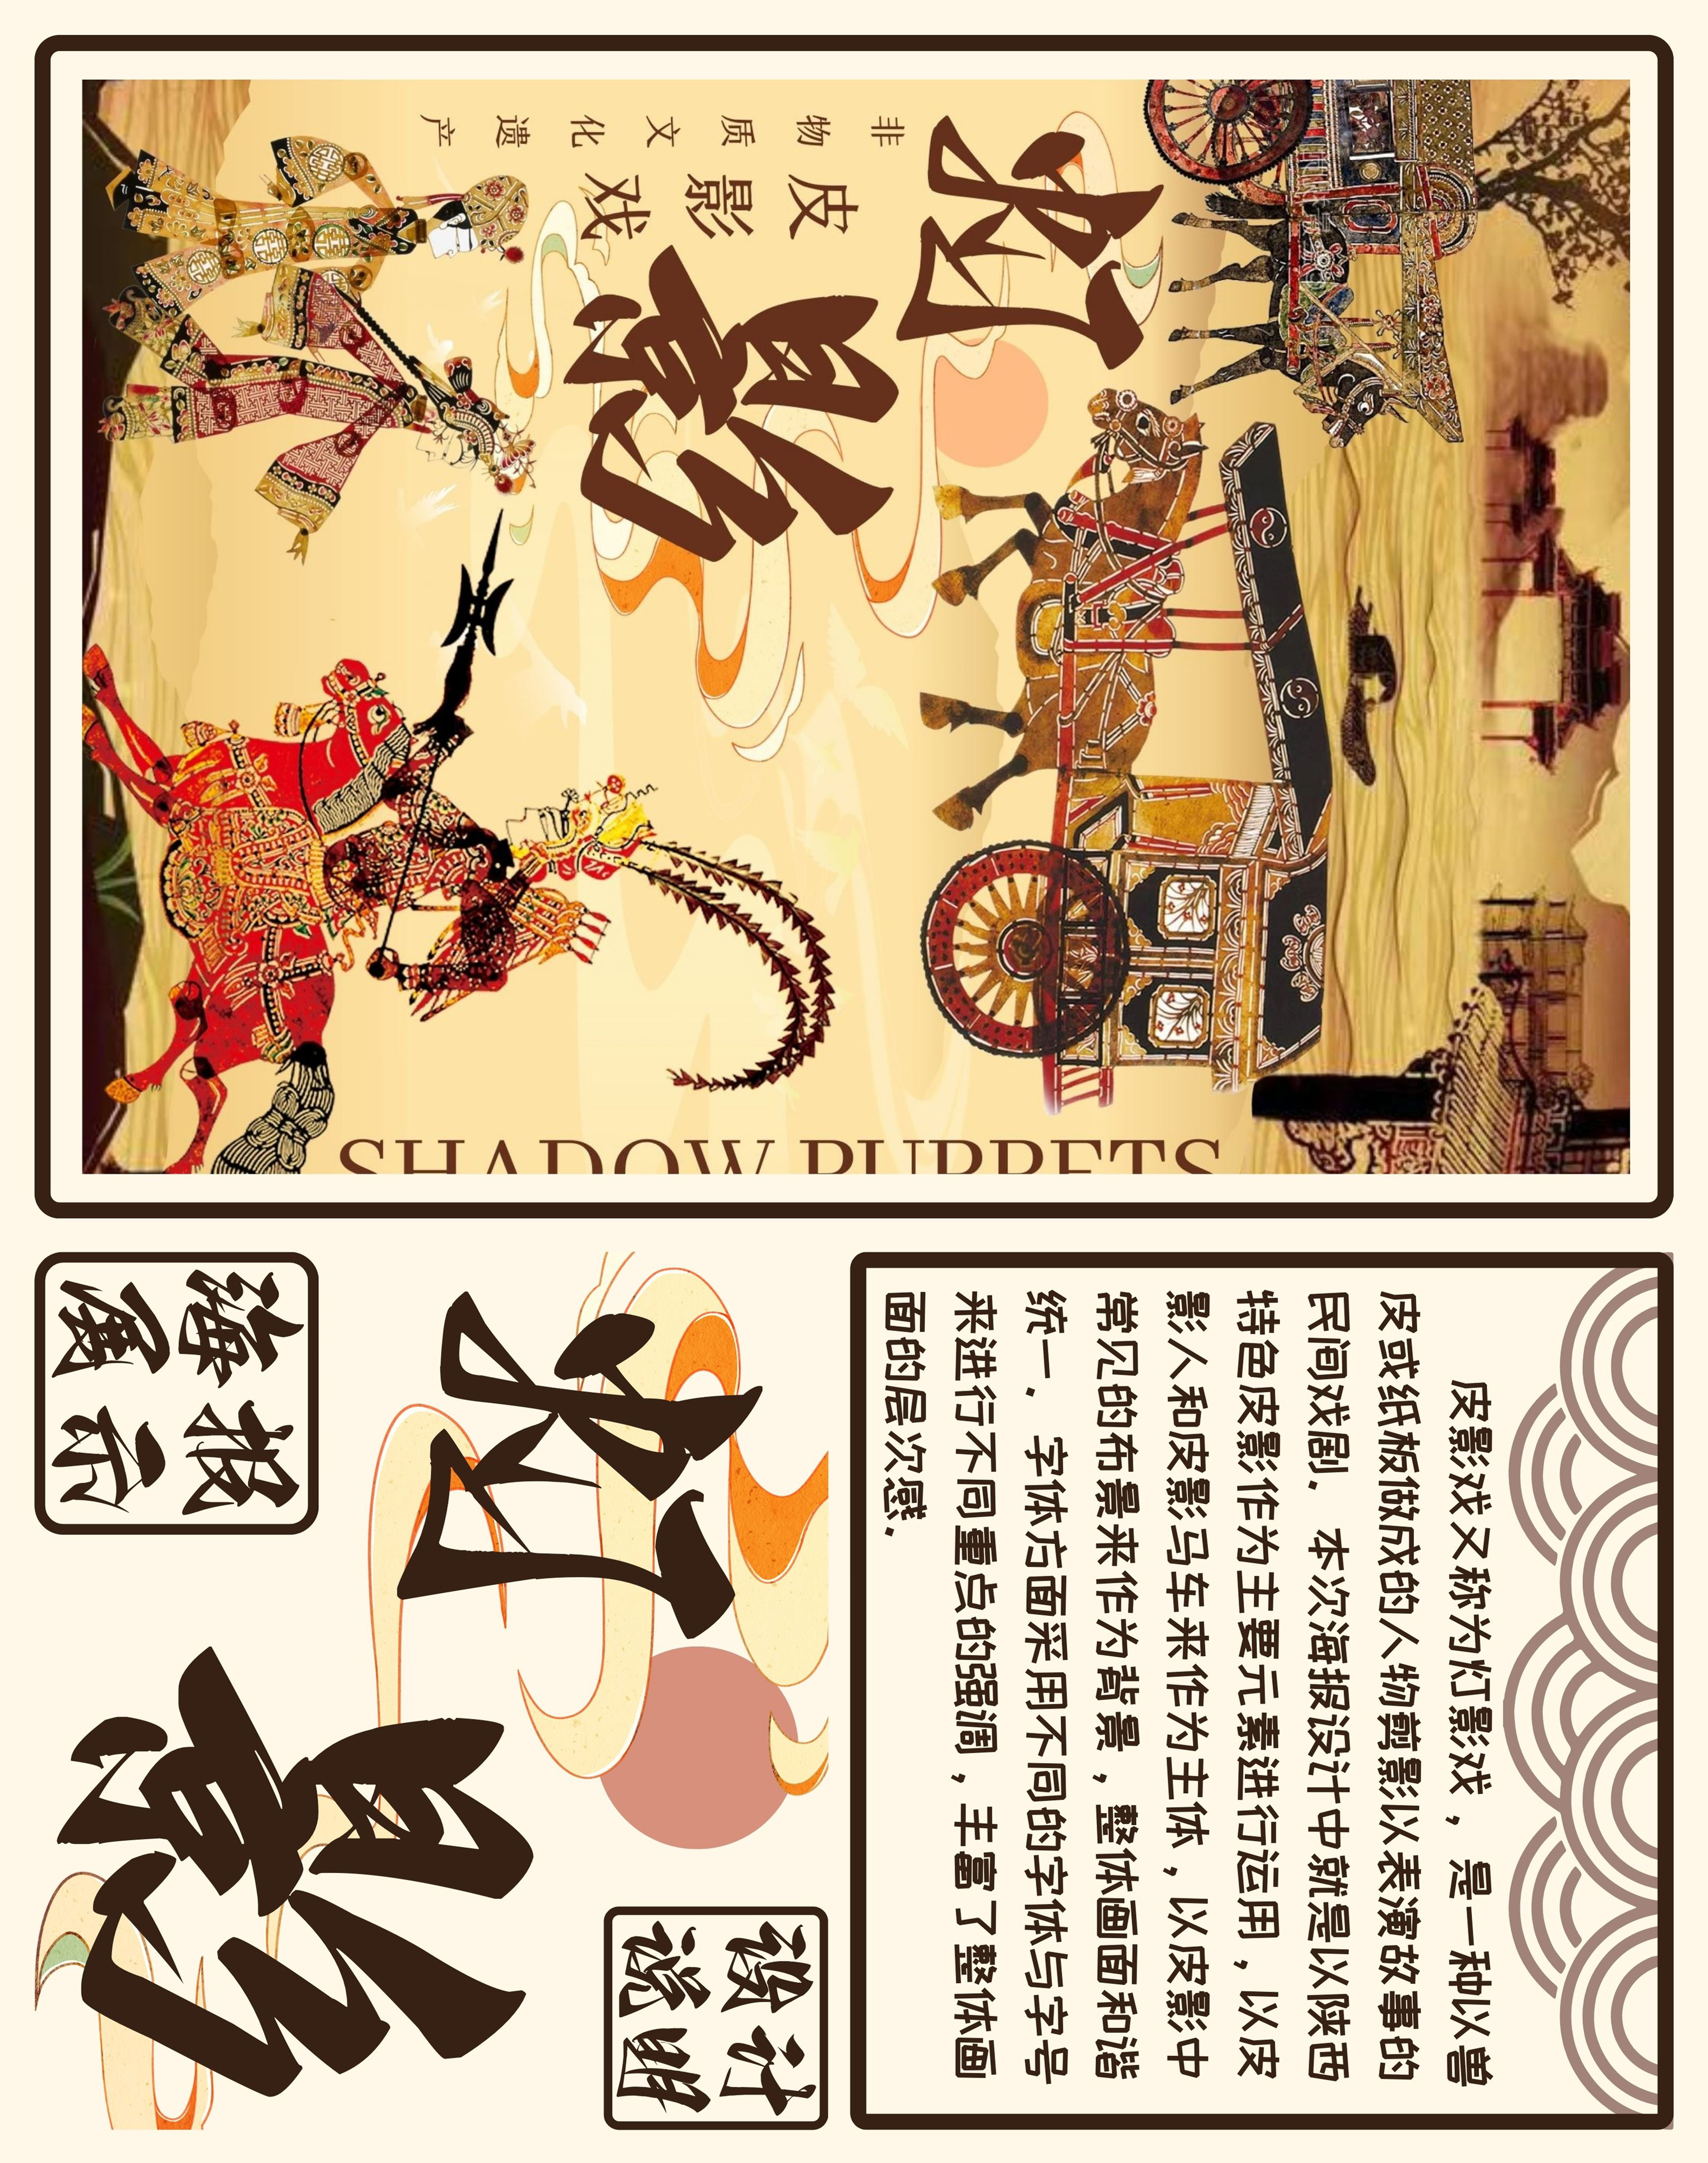 非物质文化遗产
皮影戏
灯影
SHADOW PUPPETS
海报
展示
灯影
设计
说明
皮影戏又称为灯影戏，是一种以兽
皮或纸板做成的人物剪影以表演故事的
民间戏剧．本次海报设计中就是以陕西
特色皮影作为主要元素进行运用，以皮
影人和皮影马车来作为主体，以皮影中
常见的布景来作为背景，整体画面和谐
统一．字体方面采用不同的字体与字号
来进行不同重点的强调，丰富了整体画
面的层次感．